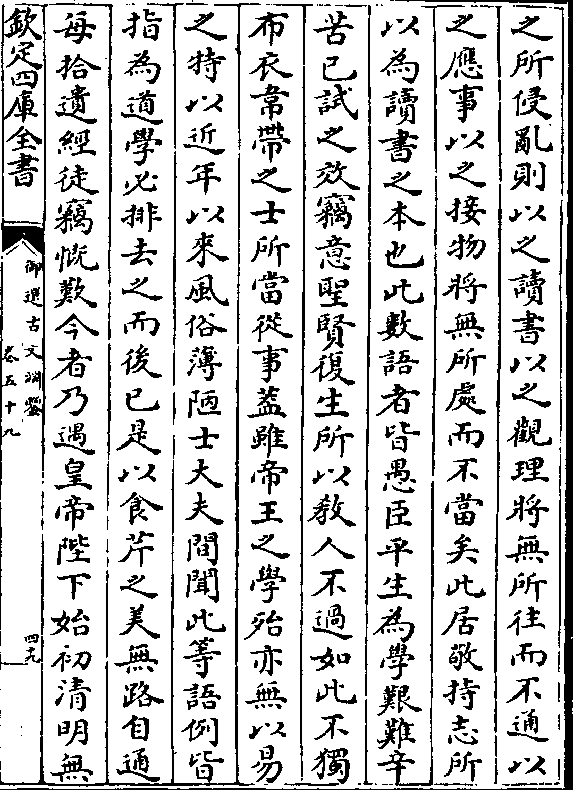 之所侵亂則以之讀書以之觀理將無所往而不通以
之應事以之接物將無所處而不當矣此居敬持志所
以為讀書之本也此數語者皆愚臣平生為學艱難辛
苦已試之效竊意聖賢復生所以教人不過如此不獨
布衣韋帶之士所當從事蓋雖帝王之學殆亦無以易
之特以近年以來風俗薄陋士大夫間聞此等語例皆
指為道學必排去之而後已是以食芹之美無路自通
每抬遺經徒竊慨歎今者乃遇皇帝陛下始初清明無
欽定四庫全書
御選古文淵鑒
卷五十九
四九